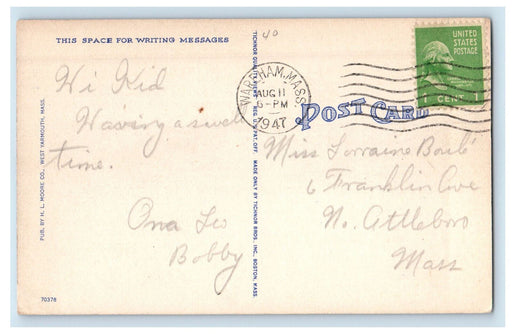 THIS SPACE FOR WRITING MESSAGES
40
UNITED
STATES
POSTAGE
1 CENT 1
WAREHAM, MASS.
AUG 11
6-PM
1947
POST CARD
Hi Kid
Having a swell
time.
Bobby
Miss Lorraine
6 Franklin Ave
No. Attleboro
Mass
PUB. BY H. L. MOORE CO., WEST YARMOUTH, MASS.
MADE ONLY BY TICHNOR BROS. INC., BOSTON, MASS.
70378